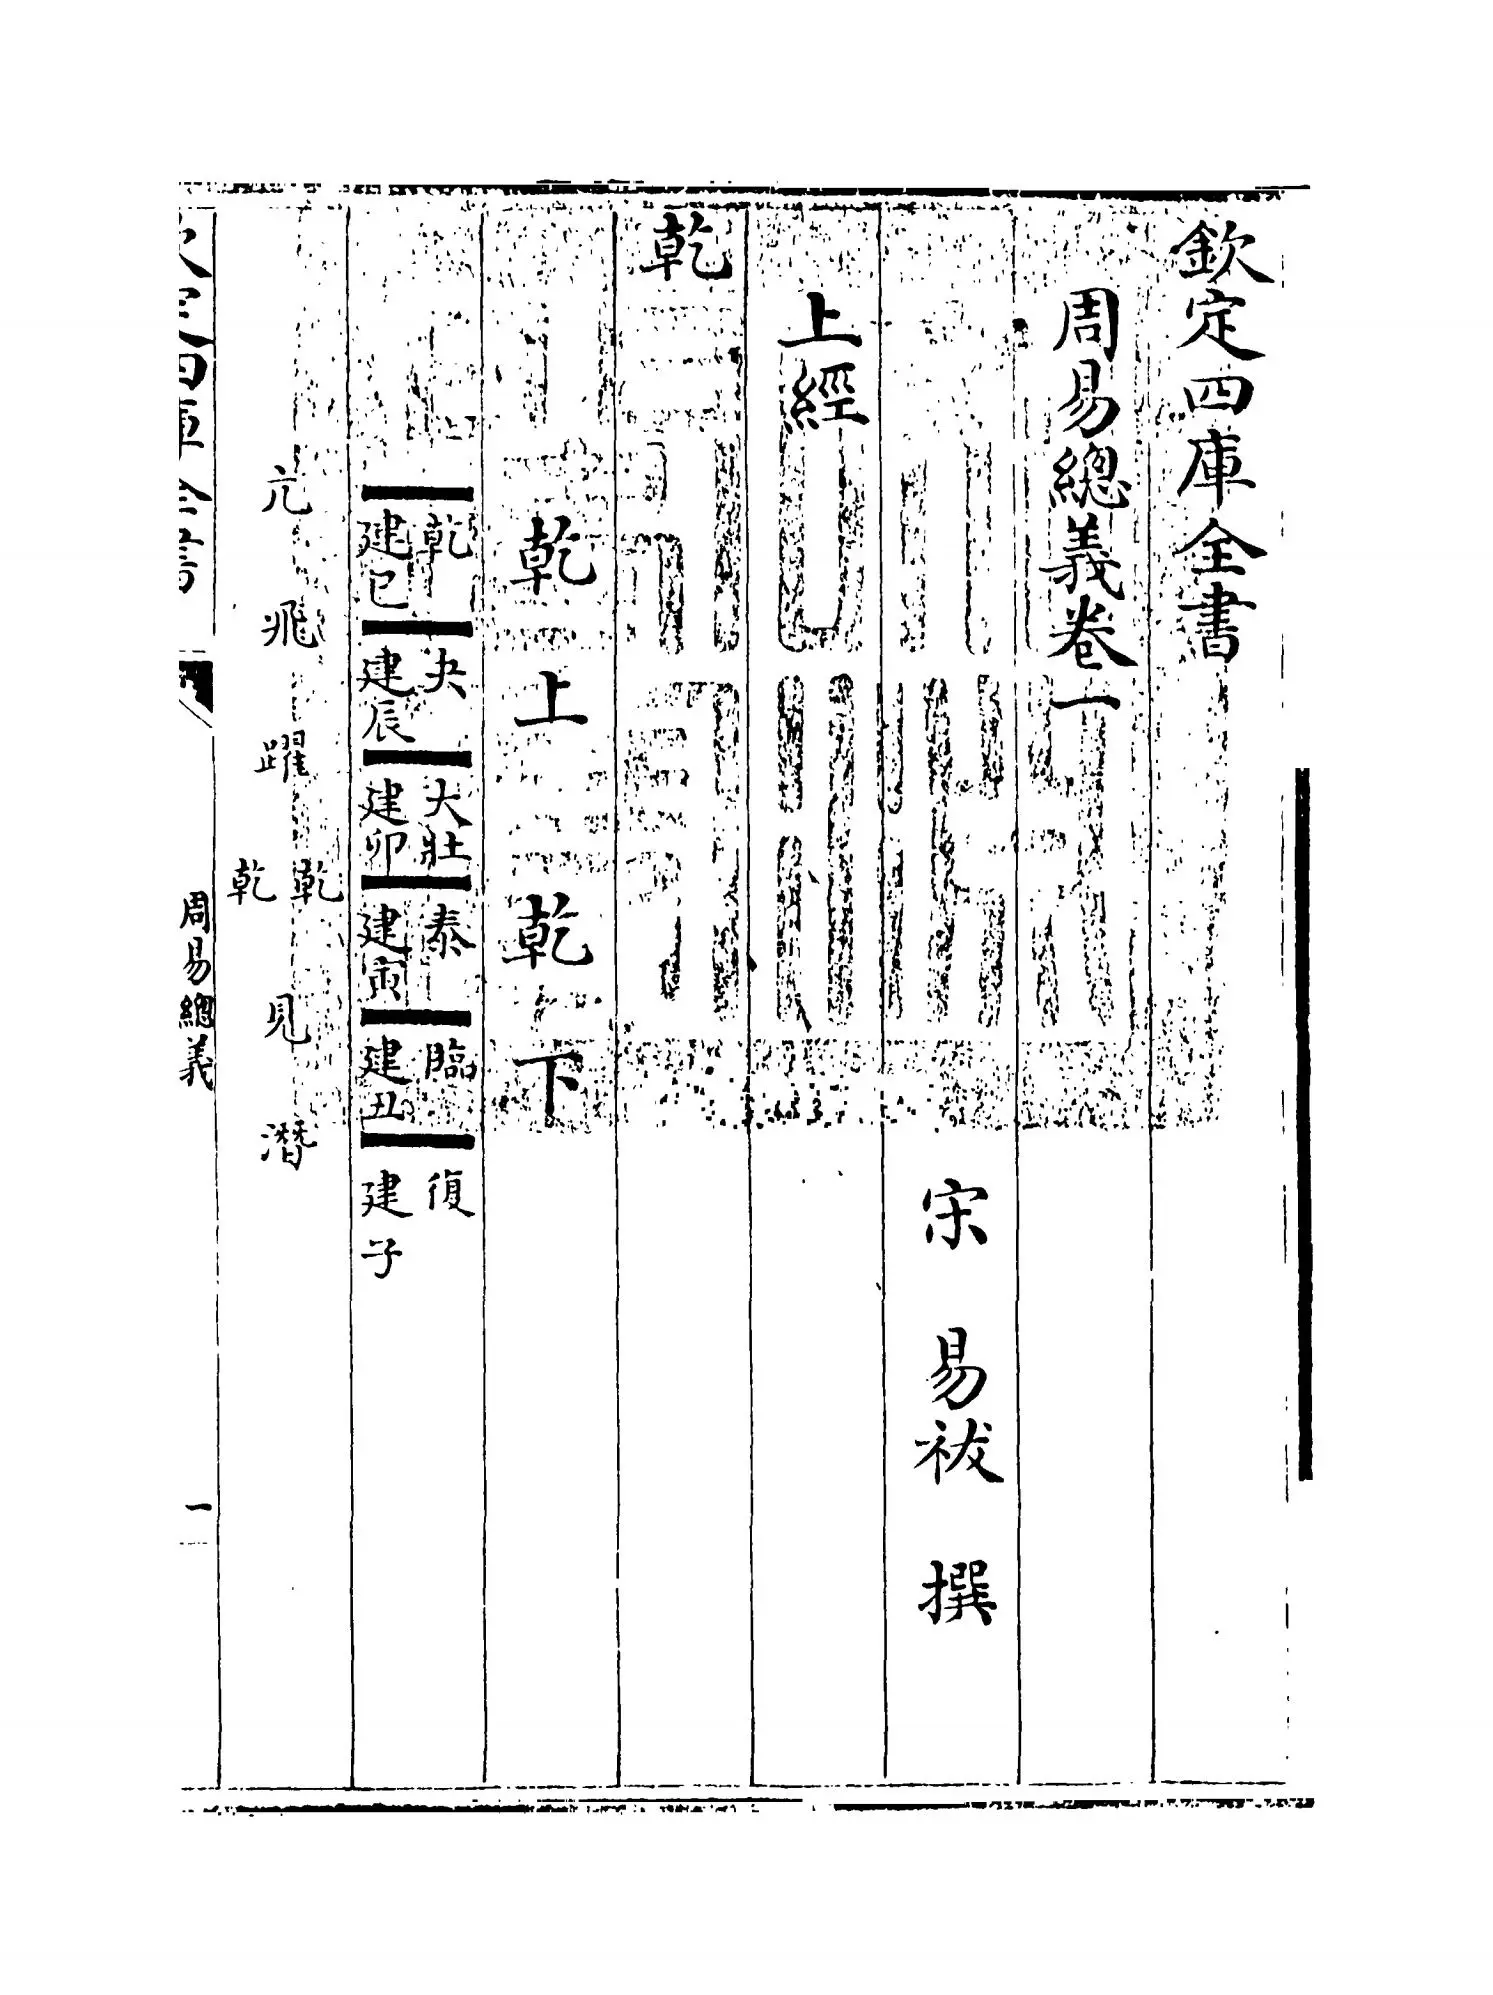 欽定四庫全書
周易總義卷一
宋 易祓 撰
上經
乾
乾上 乾下
乾 夬 大壯 泰 臨 復
建巳 建辰 建卯 建寅 建丑 建子
乾
亢 飛 躍 見 潛
乾
欽定四庫全書 周易總義 一